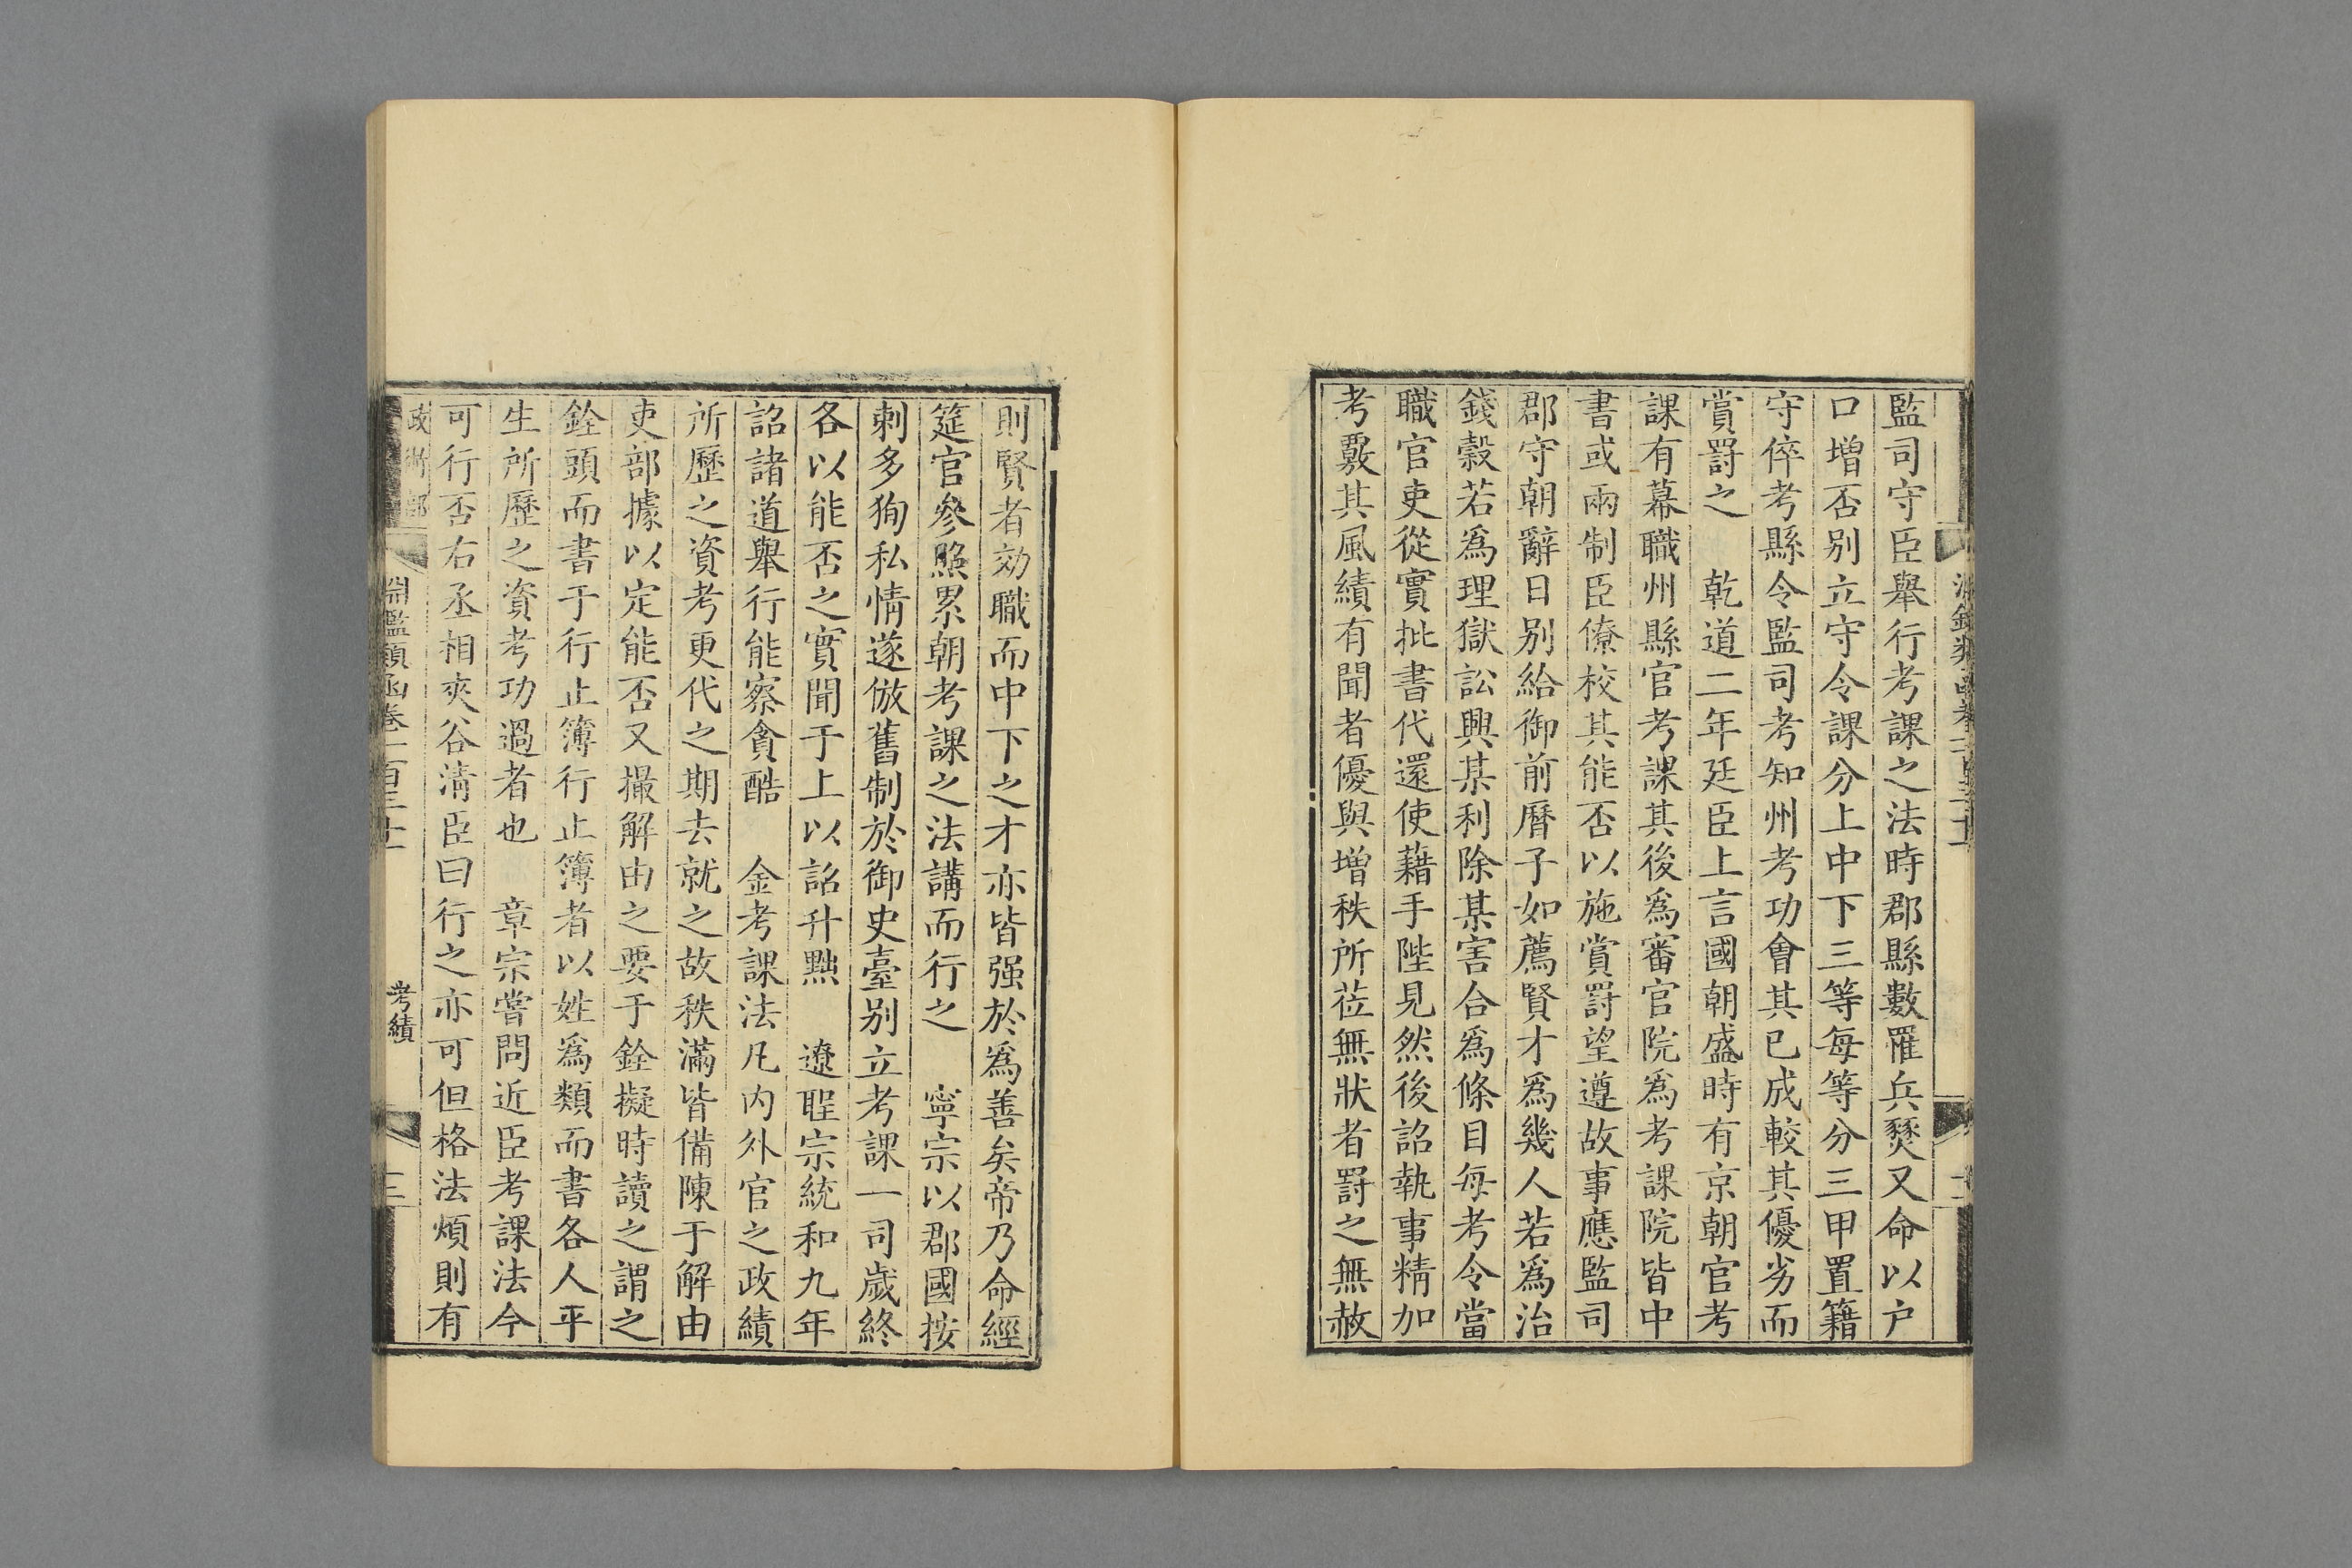 監司守臣舉行考課之法時郡縣數罹兵燹又命以户
口增否别立守令課分上中下三等每等分三甲置籍
守倅考縣令監司考知州考功會其已成較其優劣而
賞罸之　乾道二年廷臣上言國朝盛時有京朝官考
課有幕職州縣官考課其後爲審官院爲考課院皆中
書或兩制臣僚校其能否以施賞罸望遵故事應監司
郡守朝辭日别給御前曆子如薦賢才爲幾人若爲治
錢穀若爲理獄訟興某利除某害合爲條目每考令當
職官吏從實批書代還使藉手陛見然後詔執事精加
考覈其風績有聞者優與增秩所莅無狀者罸之無赦
則賢者効職而中下之才亦皆强於爲善矣帝乃命經
筵官參照累朝考課之法講而行之　寧宗以郡國按
刺多狥私情遂倣舊制於御史臺别立考課一司歲終
各以能否之實聞于上以詔升黜　遼聖宗統和九年
詔諸道舉行能察貪酷　金考課法凡内外官之政績
所歷之資考更代之期去就之故秩滿皆備陳于解由
吏部據以定能否又撮解由之要于銓擬時讀之謂之
銓頭而書于行止簿行止簿者以姓爲類而書各人平
生所歷之資考功過者也　章宗嘗問近臣考課法今
可行否右丞相夾谷清臣曰行之亦可但格法煩則有
政術部
淵鑑類函卷一百三十
考績
三